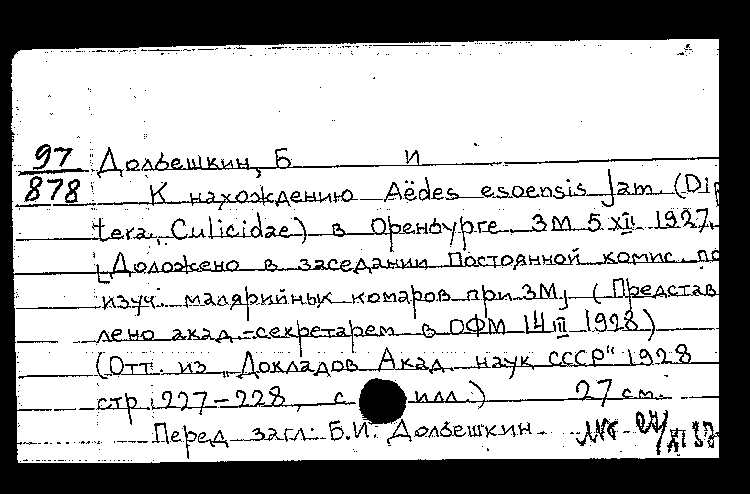 97 Долбешкин, Б И
878 К нахождению Aëdes esoensis Jam. (Dip
tera, Culicidae) в Оренбурге. ЗМ 5 XII 1927.
[Доложено в заседании Постоянной комис. по
изуч. малярийных комаров при ЗМ, (Представ
лено акад.-секретарем в ОФМ 14 III 1928)
(Отт. из „Докладов Акад. наук СССР" 1928
стр. 227-228, с илл.) 27 см.
Перед загл: Б.И. Долбешкин.